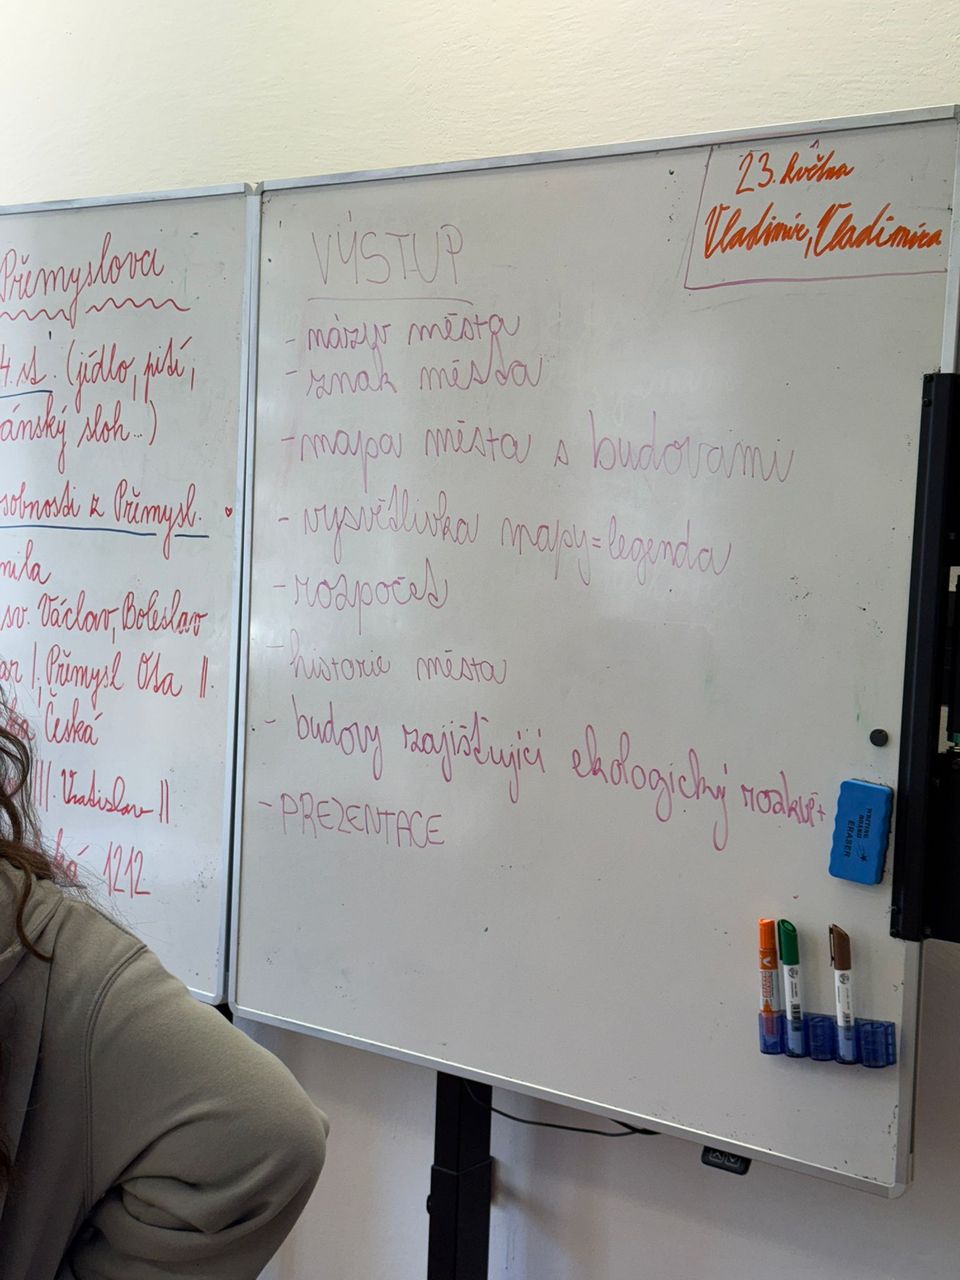 Přemyslova
4. st. (jídlo, pití,
ánský sloh...)
sobnosti z Přemysl.
mila
sv. Václav, Boleslav
ar I, Přemysl Ota II.
ka Česká
III. Vratislav II
ká 1212
23. května
Vladimír, Vladimíra
VÝSTUP
- název města
- znak města
- mapa města s budovami
- vysvětlivka mapy = legenda
- rozpočet
- historie města
- budovy zajišťující ekologický rozkvět
- PREZENTACE
WRITING
BOARD
ERASER